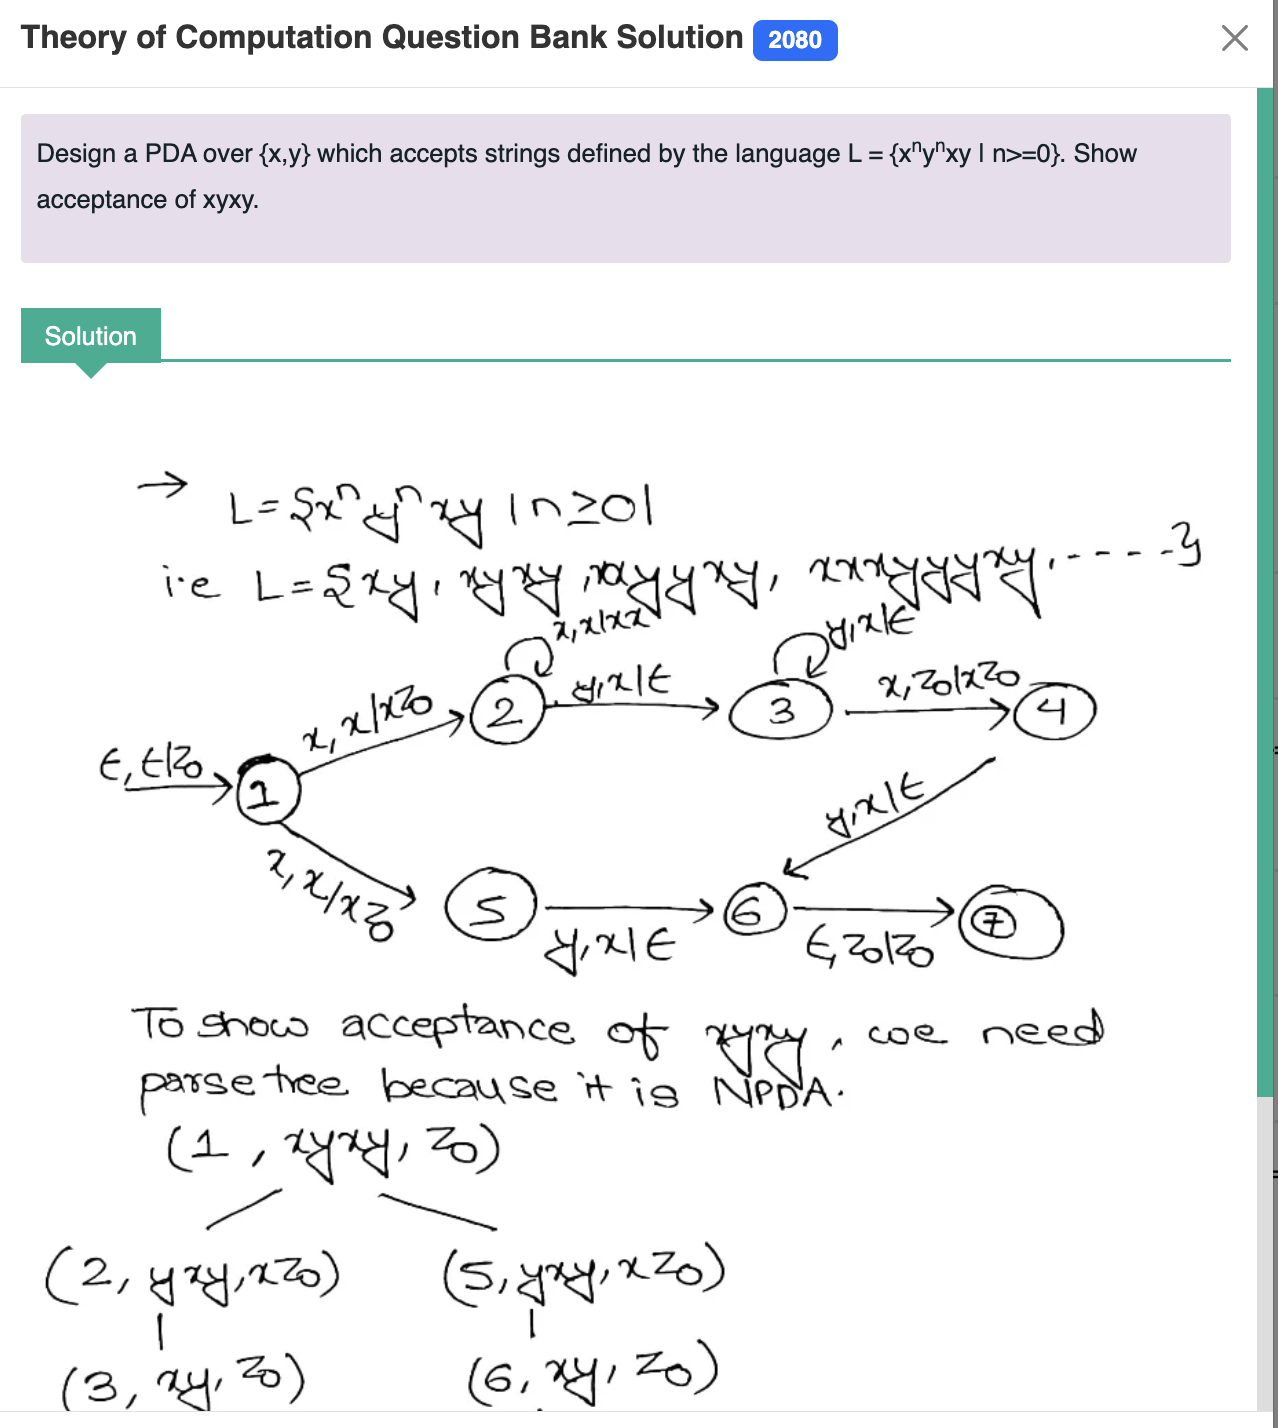 Theory of Computation Question Bank Solution 2080
Design a PDA over {x,y} which accepts strings defined by the language L = {xⁿyⁿxy | n>=0}. Show
acceptance of xyxy.
Solution
→ L = {xⁿyⁿxy | n≥0|
i.e L = {xy, xyxy, xxyyxy, xxxyyyxy, ----}
x,x|xx
y,x|ϵ
x, x|xz₀
2
y,x|ϵ
3
x,z₀|xz₀
4
ϵ, ϵ|z₀
1
y,x|ϵ
x, x/xz₀
5
y,x|ϵ
6
ϵ,z₀|z₀
7
To show acceptance of xyxy, we need
parse tree because it is NPDA.
(1, xyxy, z₀)
(2, yxy, xz₀) (5, yxy, xz₀)
(3, xy, z₀) (6, xy, z₀)